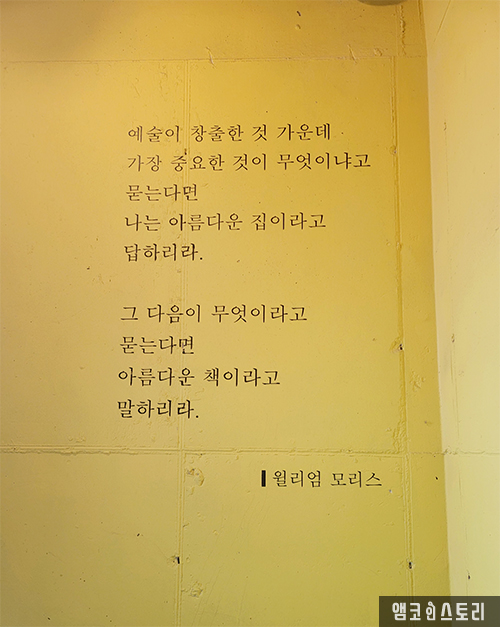 예술이 창출한 것 가운데
가장 중요한 것이 무엇이냐고
묻는다면
나는 아름다운 집이라고
답하리라.
그 다음이 무엇이라고
묻는다면
아름다운 책이라고
말하리라.
윌리엄 모리스
앰코인스토리